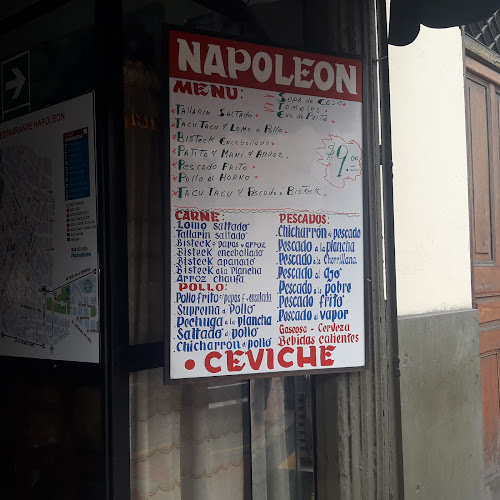 RESTAURANTE NAPOLEÓN
NAPOLEON
MENU:
SOPA DE CASA
TAMALES
TALLARIN SALTADO
TACU TACU Y LOMO o POLLO
BISTECK ENCEBOLLADO
PATITA Y MANI Y ARROZ
PESCADO FRITO
POLLO AL HORNO
TACU TACU Y PESCADO o BISTECK
S/ 9.00
CARNE:
Lomo saltado
Tallarin saltado
Bisteck + papas + arroz
Bisteck encebollado
Bisteck apanado
Bisteck a la Plancha
Arroz chaufa
POLLO:
Pollo frito + papas f. + ensalada
Suprema d Pollo
Pechuga a la plancha
Saltado d pollo
Chicharrón d pollo
PESCADOS:
Chicharrón d pescado
Pescado a la plancha
Pescado a la Chorrillana
Pescado al ajo
Pescado a lo pobre
Pescado frito
Pescado al vapor
Gaseosa - Cerveza
Bebidas calientes
• CEVICHE